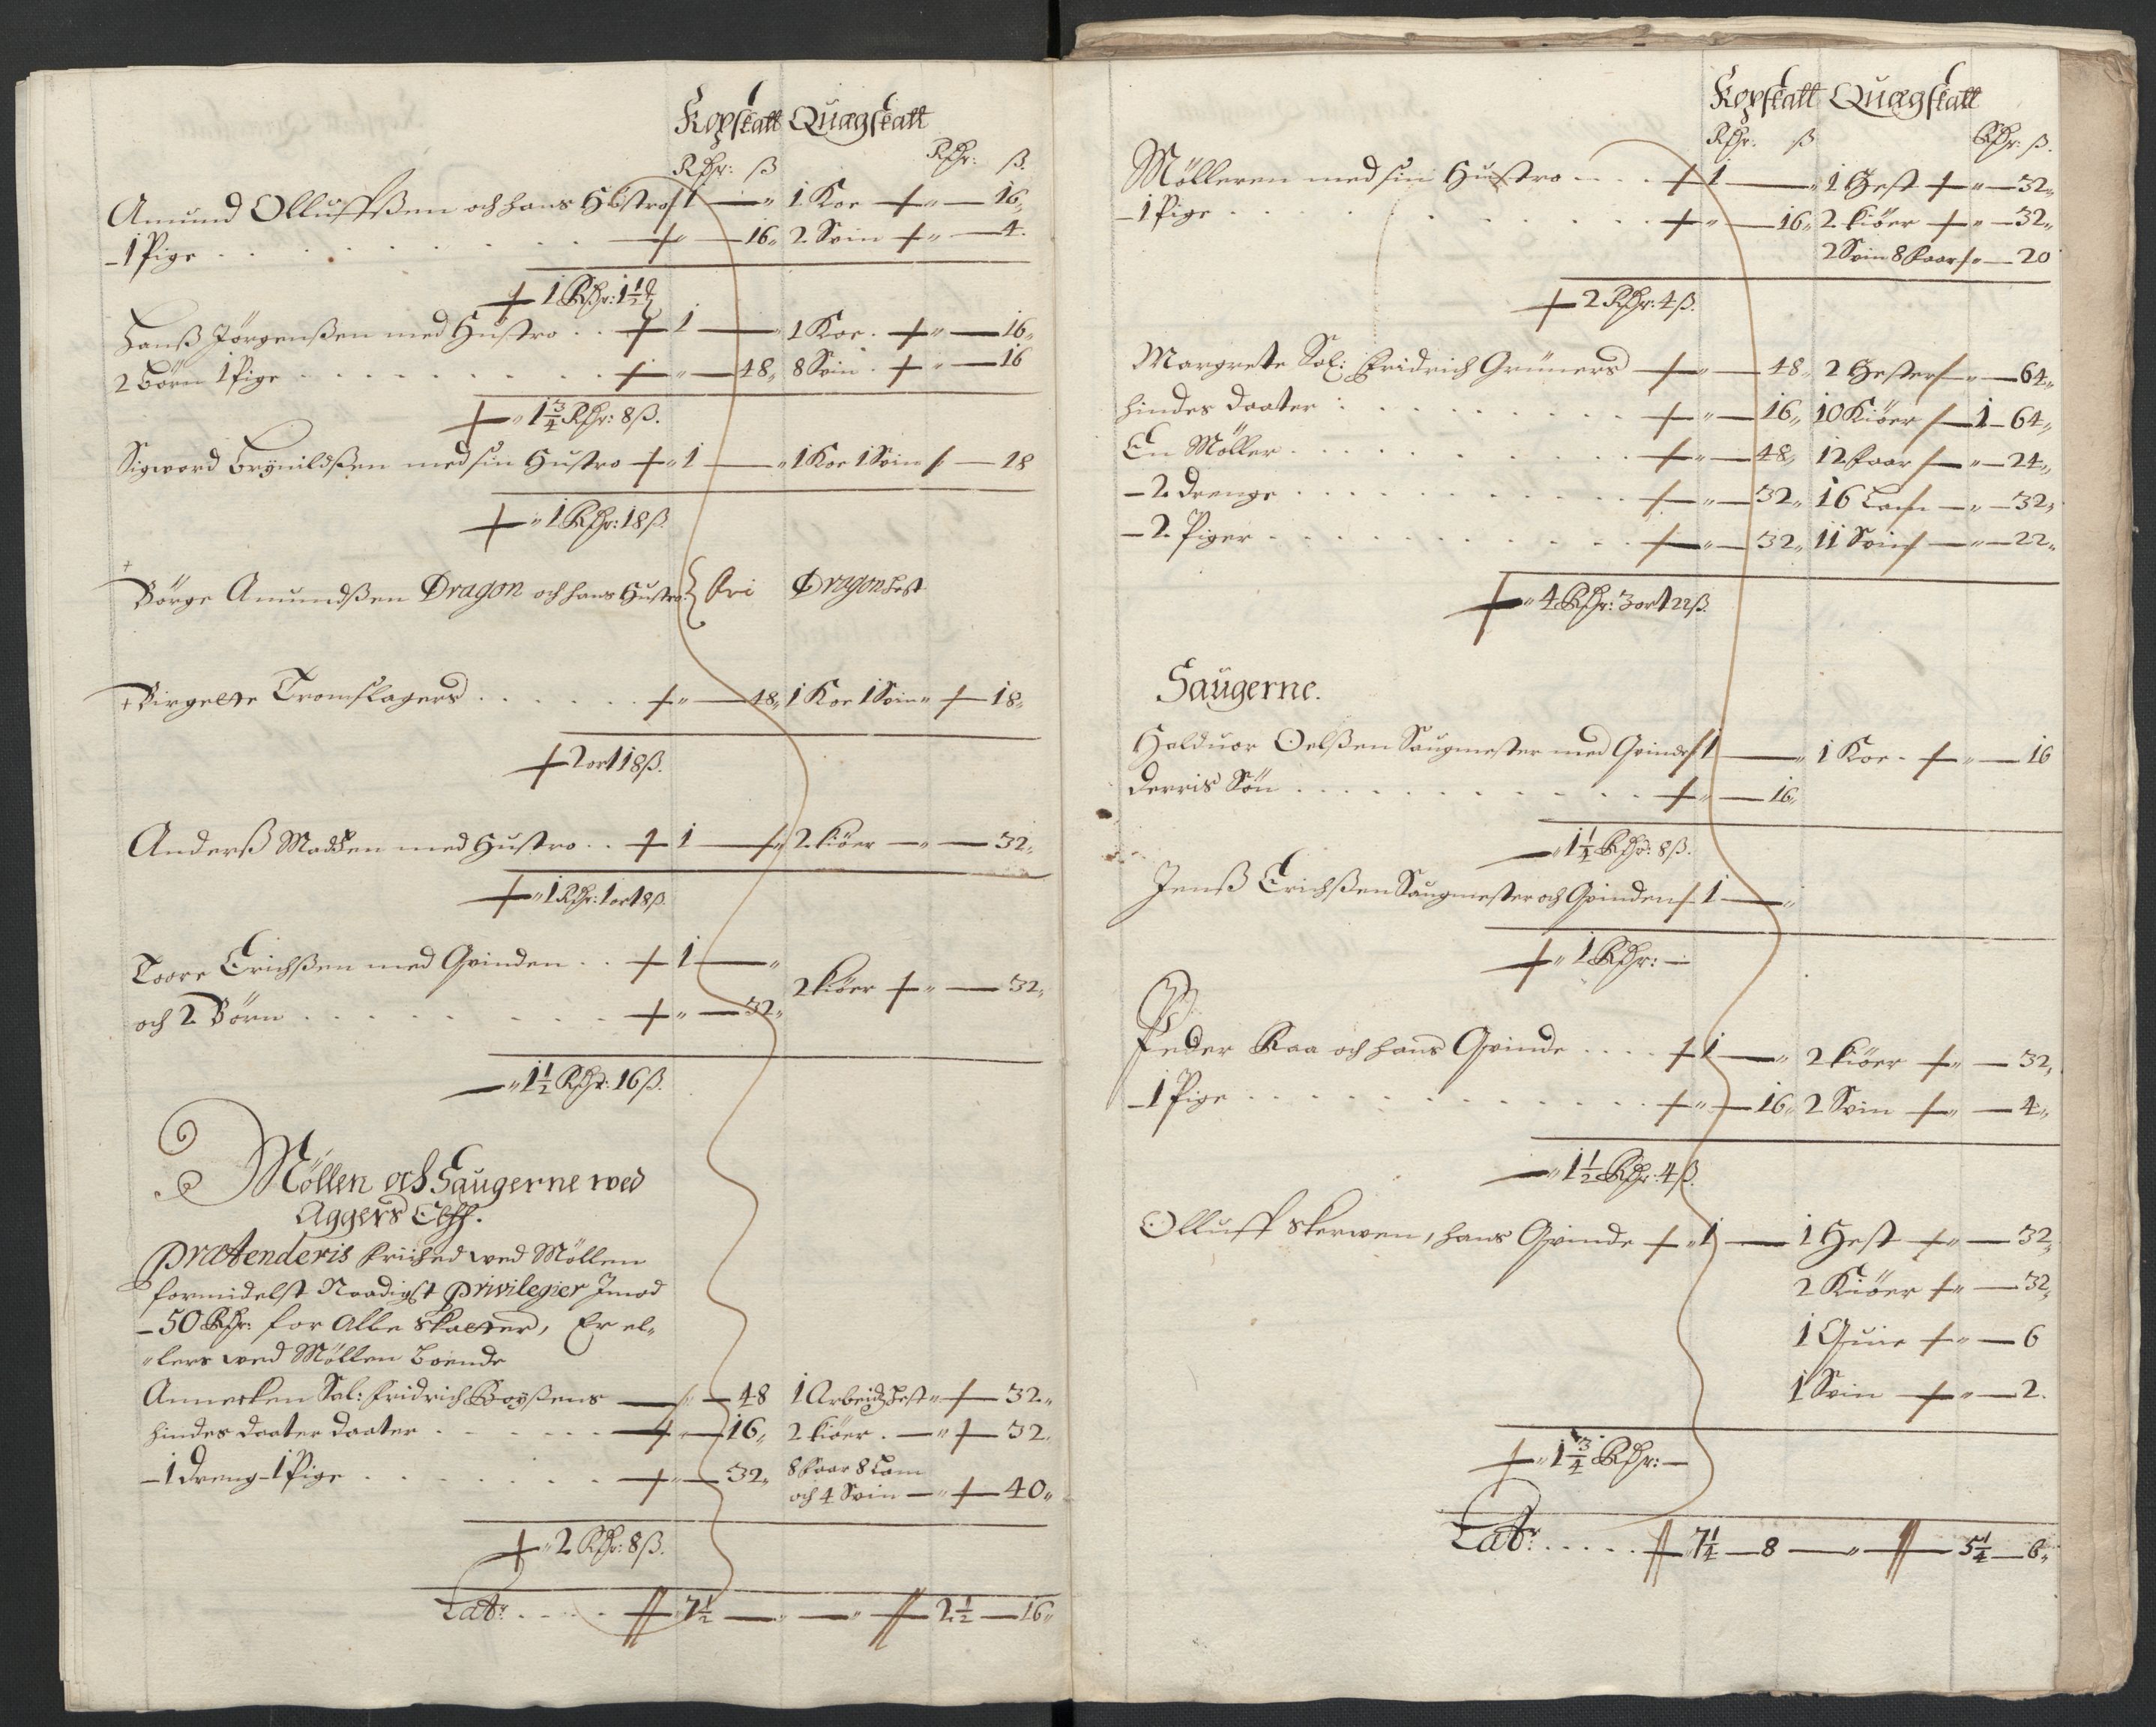 Kopskatt Quægskatt
Rdr: ß Rdr: ß.
Amund Olluffßen och hans Hustro 1 — „ 1 Koe „ — 16„
— 1 Pige . . . . . . . „ — 16„ 2 Svin „ — 4.
1 Rdr: 1½
Hanß Jørgenßen med Hustro . . 1 — „ 1 Koe . „ — 16„
2 Børn 1 Pige . . . . . . . „ — 48„ 8 Svin . „ — 16
„ 1¾ Rdr: 8 ß.
Sigword Brÿnildßen med sin Hustro „ 1 — „ 1 Koe 1 Svin — 18
„ 1 Rdr: 18 ß.
Børge Amundßen Dragon och hans Hustro } fri Dragon hest
Birgette Tromslagers . . . . . . „ — 48„ 1 Koe 1 Svin „ — 18„
2 ort 18 ß.
Anderß Madßen med Hustro . . 1 — „ 2 kiøer — „ — 32„
„ 1 Rdr: 1 ort 8 ß.
Toore Erichßen med Qvinden . . 1 — „
2 kiøer „ — 32„
och 2 Børn . . . . . . . „ — 32„
— „ 1½ Rdr: 16 ß.
Møllen och Saugerne wed
Aggers Elff.
Prætenderis friihed wed Møllen
formidelst Naadigst Privilegier Imod
— 50 Rdr: for Alle Skatter, Er el„
„lers wed Møllen boende
Annecken Sal: Fridrich Boyßens — — 48 1 Arbeidz hest „ — 32„
hindes daater daater . . . . . . „ — 16„ 2 kiøer . — „ — 32„
— 1 dreng — 1 Pige . . . . . . . „ — 32„ 8 Faar 8 Lam
och 4 Svin — „ — 40„
„ 2 Rdr: 8 ß.
Lat: . . . . . 7½ — „ — „ — 2½ — 16„
Kopskatt Quægskatt
Rdr: ß Rdr: ß.
Mølleren med sin Hustro . . . . 1 — „ 1 Hest „ — 32„
— 1 Pige . . . . . . . . „ — 16„ 2 kiøer „ — 32„
2 Svin 8 Faar „ — 20
2 Rdr: 4 ß.
Margrete Sal: Fridrich Grüners „ — 48„ 2 Hester „ — 64„
hindes daater : . . . . . . . . „ — 16„ 10 Kiøer — 1 — 64„
En Møller . . . . . . . . . „ — 48„ 12 faar — „ — 24„
— 2 drenge . . . . . . . . . „ — 32„ 16 Lam — „ — 32„
— 2 Piger . . . . . . . . . „ — 32„ 11 Svin — „ — 22„
„ 4 Rdr: 3 ort 22 ß.
Saugerne.
Halduor Oelßen Saugmester med Qvinde 1 — „ 1 Koe . „ — 16
derris Søn . . . . . . . . . „ — 16„
— „ 1¼ Rdr: 8 ß.
Jenß Erichßen Saugmester och Qvinden 1 — „
„ 1 Rdr: —
Peder Raa och hans Qvinde . . . . 1 — „ 2 kiøer „ — 32„
— 1 Pige . . . . . . . . . . „ — 16„ 2 Svin „ — 4„
— „ 1½ Rdr: 4 ß.
Olluff Skerwen, hans Qvinde „ 1 — 1 Hest „ — 32„
2 Kiøer „ — 32„
1 Quie „ — 6
1 Svin — „ — 2.
„ 1¾ Rdr: —
Lat: . . . . . „ 7¼ — 8 — „ — 5¼ — 6„